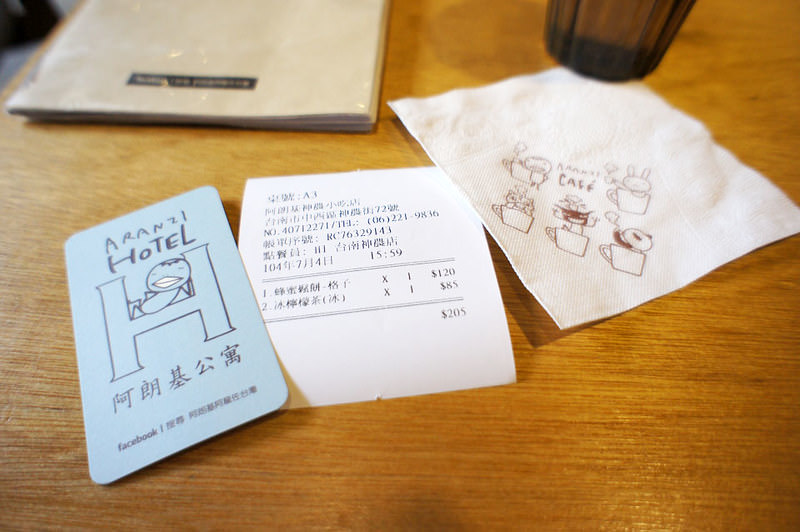 桌號:A3
阿朗基神農小吃店
台南市中西區神農街72號
NO.40712271/TEL: (06)221-9836
帳單序號: RC76329143
點餐員: III 台南神農店
104年7月4日 15:59
1.蜂蜜鬆餅-格子 X 1 $120
2.冰檸檬茶(冰) X 1 $85
$205
ARANZI
HOTEL
H
阿朗基公寓
facebook | 搜尋 阿朗基阿龍佐台灣
ARANZI
CAFÉ